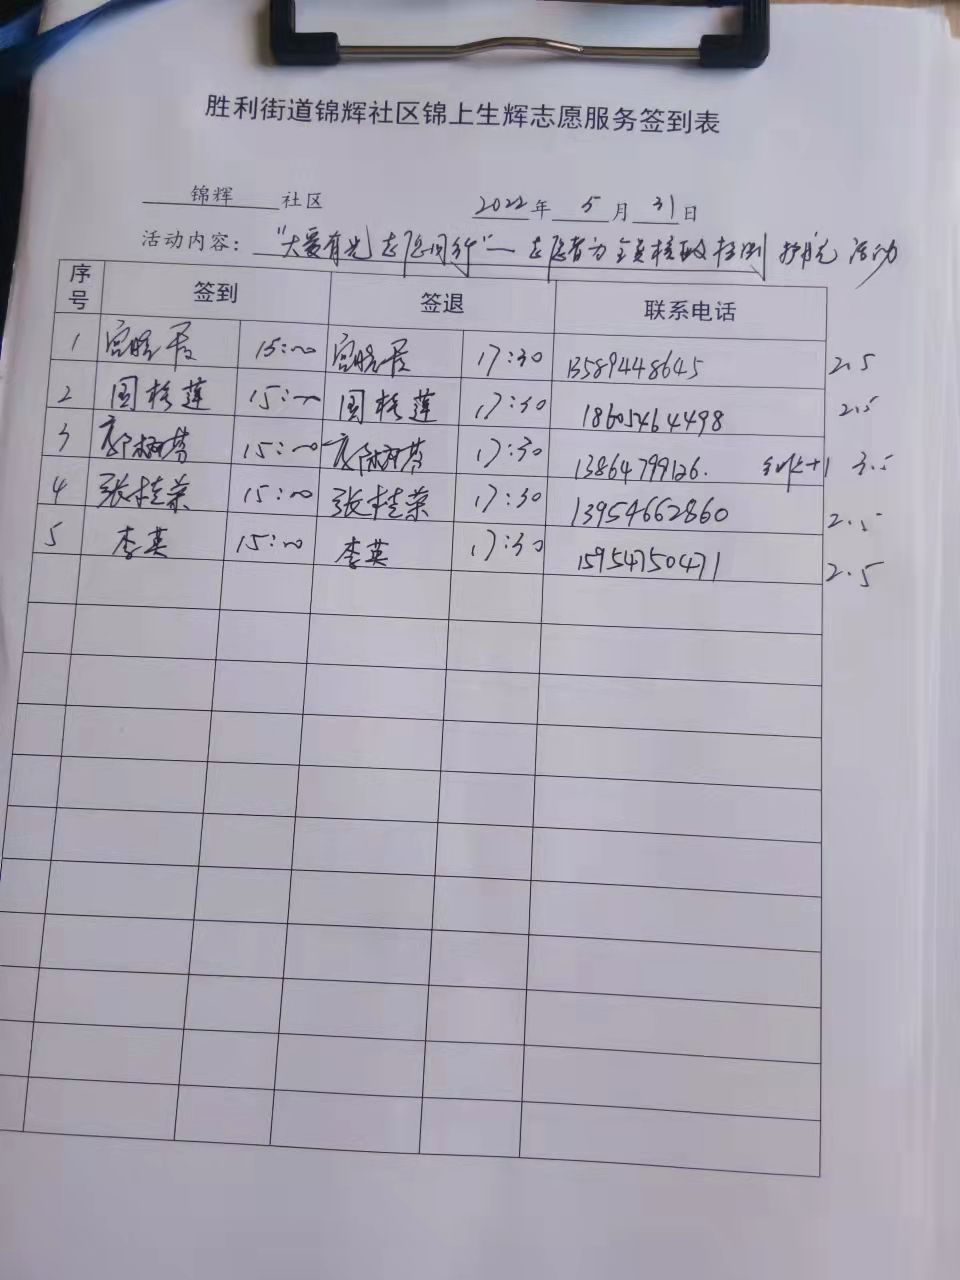 胜利街道锦辉社区锦上生辉志愿服务签到表
锦辉 社区 2022年 5 月 31 日
活动内容: "大爱有光 志愿同行"— 志愿者为全员核酸检测护航 活动
序号 签到 签退 联系电话
1 宫晓霞 15:00 宫晓霞 17:30 13589448645 2.5
2 周桂莲 15:00 周桂莲 17:30 18605464498 2.5
3 15:00 17:30 13864799126. +1 3.5
4 张桂荣 15:00 张桂荣 17:30 13954662860 2.5
5 李英 15:00 李英 17:30 15954750471 2.5